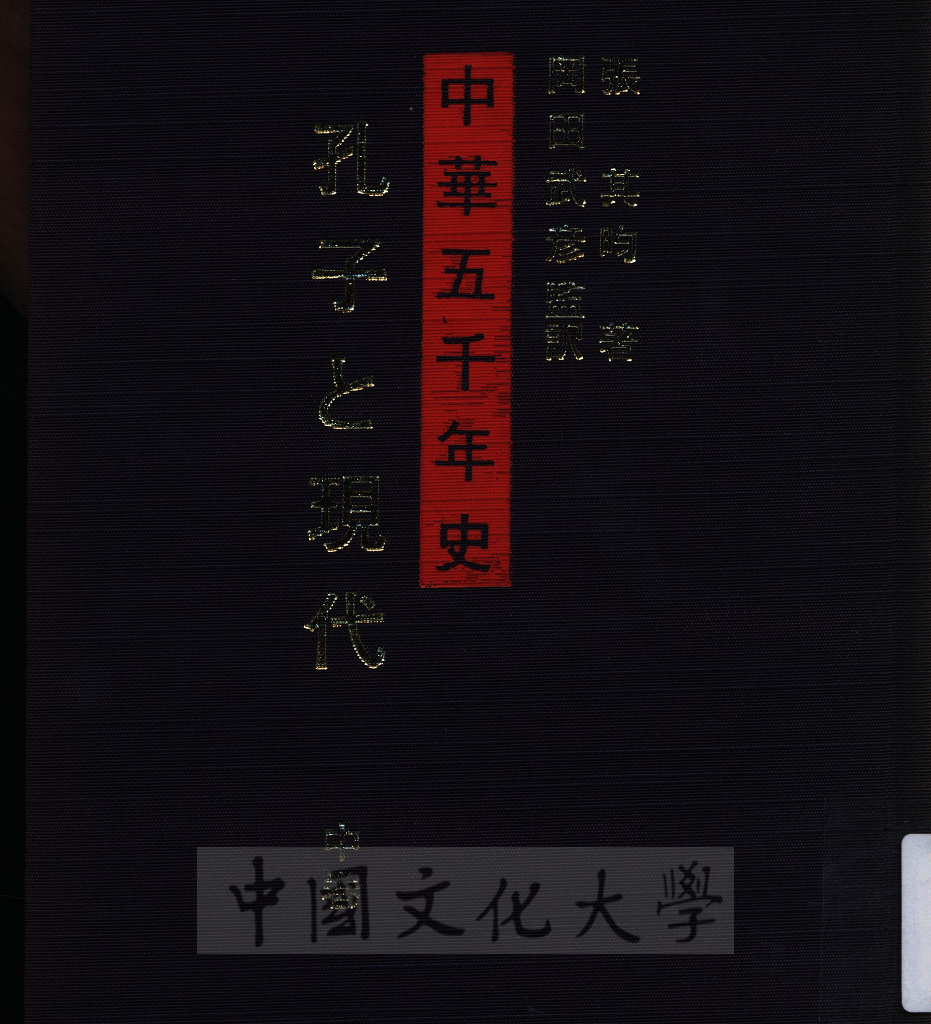 張其昀 著
岡田武彦 監訳
中華五千年史
孔子と現代
中巻
中國文化大學